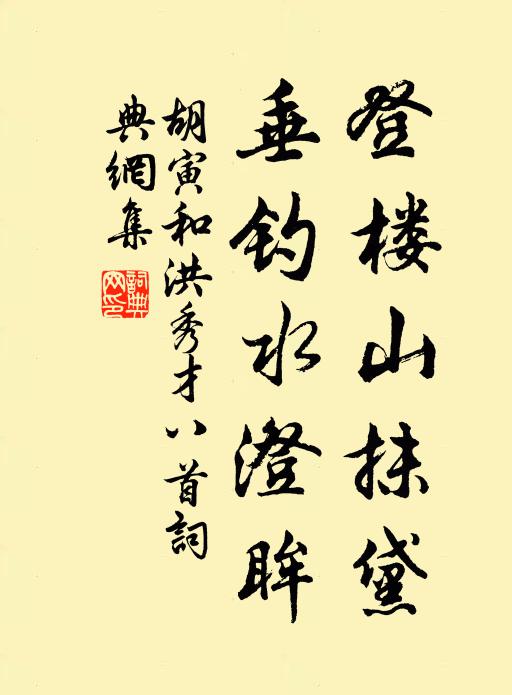 登楼山抹黛
垂钓水澄眸
胡寅和洪秀才八首詞
典網集
詞典網印